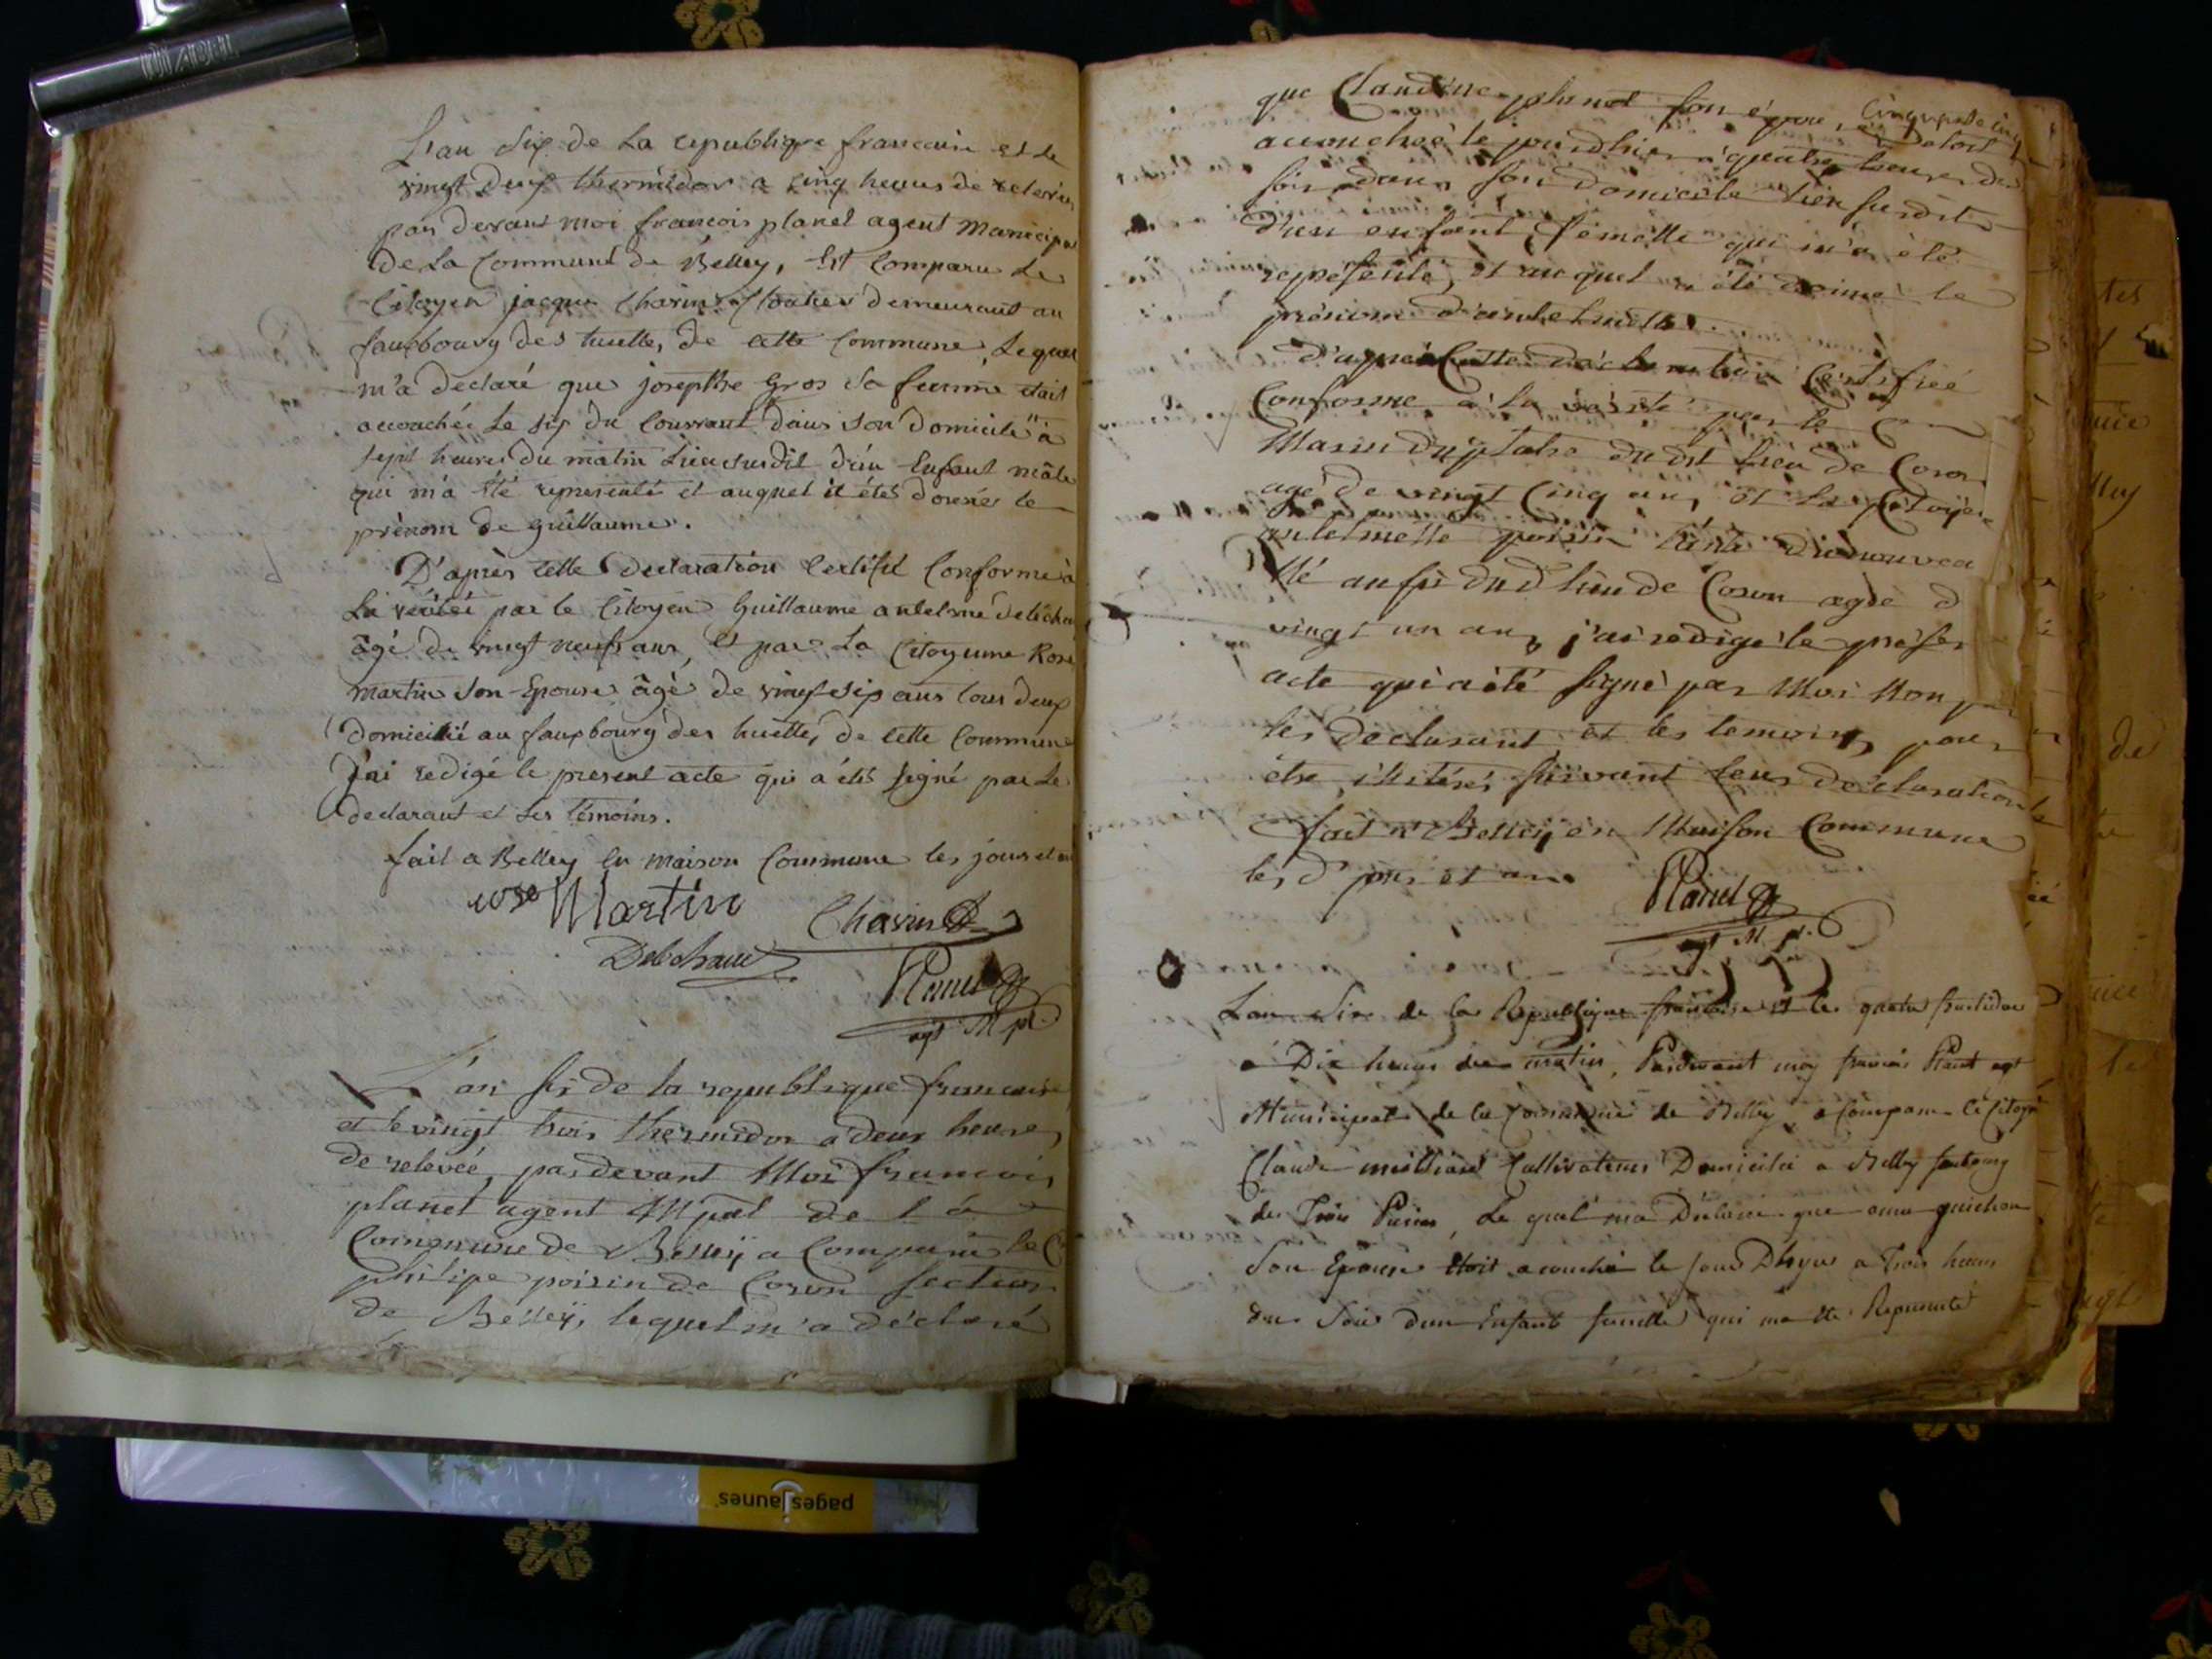 L'an six de la republique francaise et le
vingt deux thermidor a cinq heures de relevée
par devant moi francois planet agent Municipal
de La Commune de Belley, est Comparu Le
Citoyen jacque Charin demeurant au
fauxbourg des huelles, de cette Commune, Lequel
m'a declaré que josepthe Gros Sa femme etait
accouchée Le six du Courrant dans Son Domicile à
sept heures Du matin Lieu susdit d'un Enfant mâle
qui m'a été representé et auquel il étet donnés le
prènom de guillaume.
D'après cette declaration Certifié Conforme à
La verité par le Citoyen Guillaume antelme
âgé de vingt neuf ans, et par La Citoyenne Rose
martin Son Epouse âgé de vingt six ans tous deux
Domicilié au fauxbourg des huelles, de cette Commune
J'ai redigé le present acte qui a étés signé par Le
declarant et Les témoins.
fait a Belley en maison Commune les jour et an
rose Martin
Charin
Planet
agt M pl
L'an six de la republique francaise
et le vingt trois thermidor a deux heures
de relevée, pardevant Moi francois
planet agent Mpal de la
Commune de Belleÿ a Comparu le C
philipe poisin de Coron section
de Belleÿ, lequel m'a déclaré
que Claudine planet son épouse,
accouchée le jourdhier a quatre heures du
soir dans son domicile lieu susdit
d'un enfant femelle qui m'a été
represente, et auquel a été donné le
prénom d'antelmette
d'après Cette déclaration Certifiée
Conforme a la vérité par le
Marin du dit lieu de Coron
agé de vingt Cinq ans, et la Citoÿene
antelmette poisin
aussi dud lieu de Coron agée d
vingt un ans, j'ai redigé le presen
acte qui a été signé par Moi Non par
les declarant et les temoins, pour
être illitérés suivant leur déclaration
fait a Belleÿ en Maison Commune
les d jour et an
Planet
agt M pl.
Lan Six de la Republique francaise et le quatre fructidor
a Dix heures du matin, Pardevant moy francois Planet agt
Municipal de la Commune de Belley, a Comparu le Citoye
Claude Cultivateur Domicilié a Belley faubourg
des Trois , Le quel ma Déclaré que guichon
Son Epouse étoit acouchée le jour Dhyer a Trois heures
du Soir dun Enfant femelle qui ma été Representé
pagesjaunes